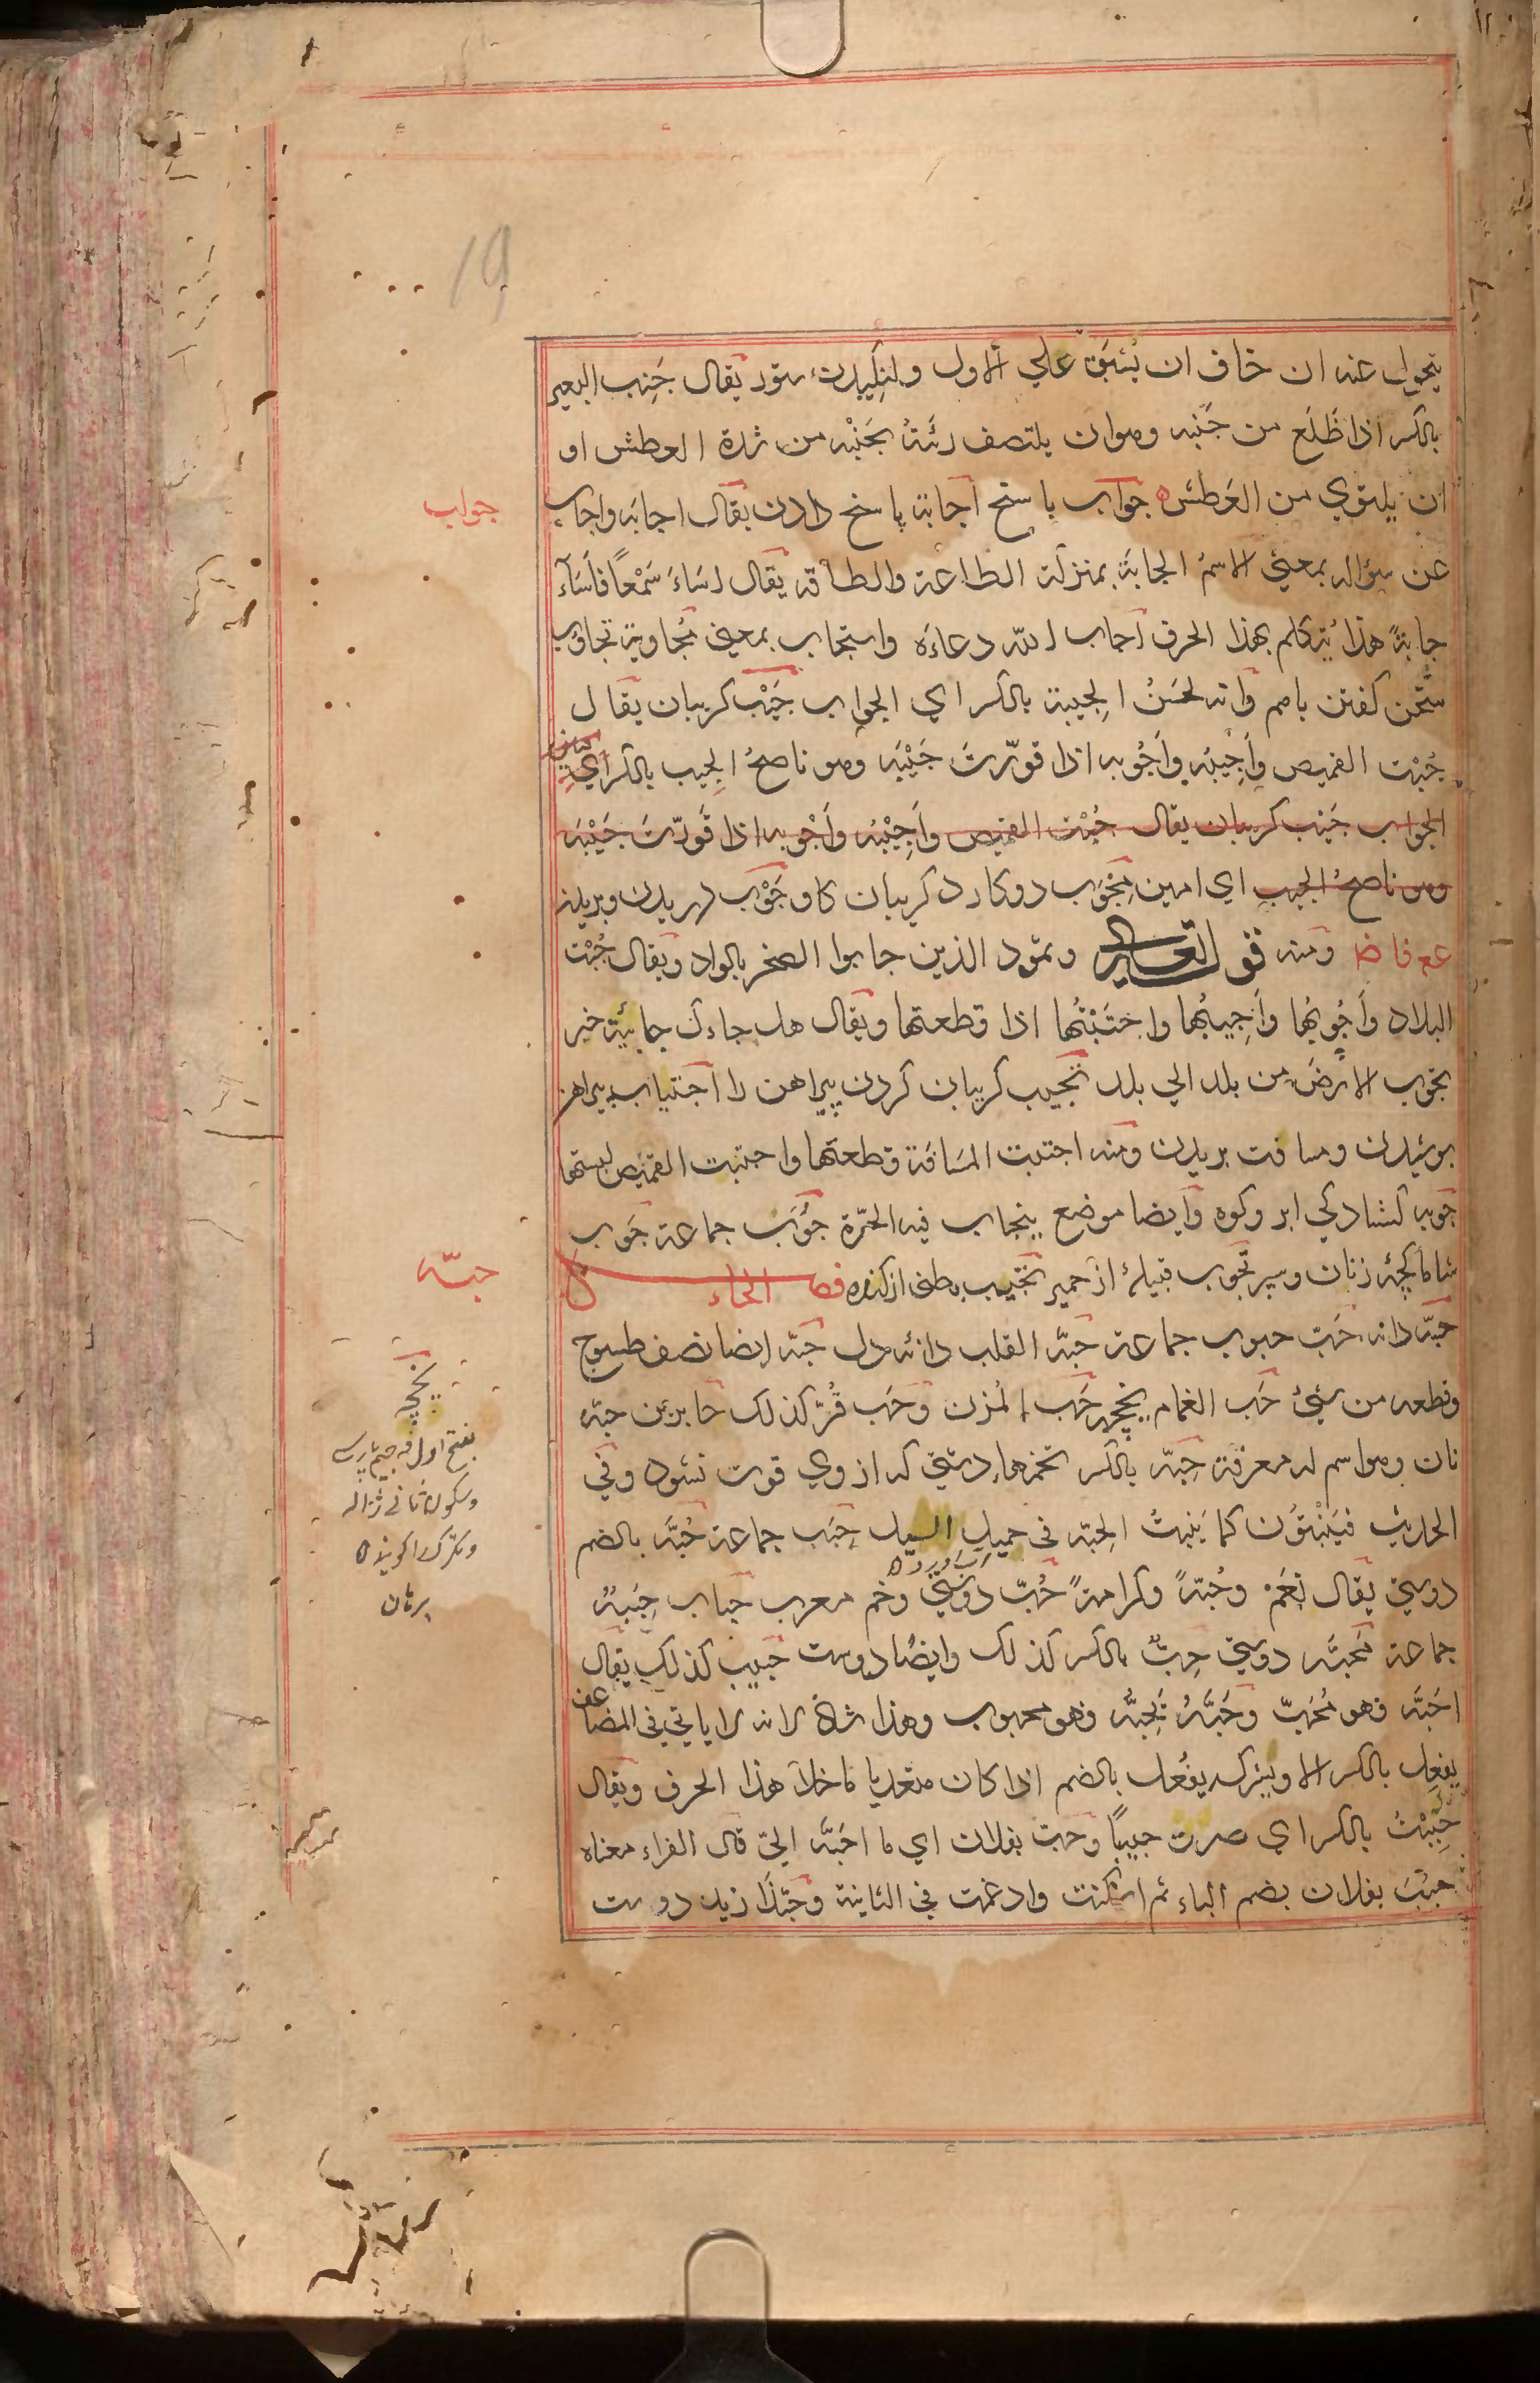 19
يتحول عنه ان خاف ان يُسْبَق علي الاول ولنكيدن ستور يقال جَنِب البعير
بالكسر اذا ظَلَع من جَنْبه وهو ان يلتصف رئتهُ بجَنْبه من شدة العطش او
ان يلتوي من العَطش جواب پاسخ اجابة پاسخ دادن يقال اجابه واجاب
عن سؤاله بمعني الاسمُ الجابَة بمنزلة الطاعة والطاقة يقال اساءَ سَمْعًا فاَسَآءَ
جابةً هذا يُتكلم بهذا الحرف اجاب الله دعاءَه واستجاب بمعني مُجاوبة تجاوب
سخن كفتن باهم وانه لحسَنُ الجِيبة بالكسر اي الجواب جَيْب كريبان يقال
جُبْت القميص وَاَجِيبُه وَاَجُوبه اذا قورّتَ جَيْبَه وهو ناصحُ الجيب بالكسر اي
الجواب جَيْب كريبان يقال جُبْت القميص وَاَجِيْبُه وَاَجُوبه اذا قَورّتَ جَيْبَه
وهو ناصحُ الجيب اي امين مِجْوَب دوكارد كريبان كاو جَوْب دريدن وبريدن
عع فاض ومنه قوله تعالى وثمود الذين جابوا الصخر بالواد ويقال جُبْت
البلاد وَاَجُوبُها وَاَجِيبُها واجتَبْتُها اذا قطعتها ويقال هل جاءك جائبة خبر
تجوب الارضَ من بلد الي بلد تجييب كريبان كردن پيراهن را اجتياب پيراهن
پوشيدن ومسافت بريدن ومنه اجتبت المسَافَة قطعتها واجتبت القميص لبستها
جوبه كشادكي ابر وكوه وايضا موضع ينجاب فيه الحَرّة جُوَب جماعة جَوب
شاماكچهٔ زنان وسپر تجوب قبيلهٔ از حمير تجيب بطني از كنده فصل الحاء
حبّه دانه حَبّ حبوب جماعة حبَّة القلب دانه دل حبّة ايضا نصف طسوج
وقطعه من شيئ حَب الغمام يخچه حَب المُزن وحَب قُرّ كذلك جابر بن حبّه
نان وهو اسم له معرفة حِبّه بالكسر تخمها دشتي كه از وي قوت نشود وفي
الحديث فيَنْبتُون كما يَنبتُ الحِبّة في حميل السيل حِبَب جماعة حُبَّة بالضم
دوستي يقال نِعَمْ وحُبّةً وكرامةً حُبّ دوستي وخم معرب حباب حِبَبة
جماعة مَحبَّه دوستي حِبٌّ بالكسر كذلك وايضًا دوست حَبيب كذلك يقال
اَحَبَّه فهو مُحَبّ وحَبَّهُ يَحِبُّه فهو محبوب وهذا شاذ لانه لا ياتي في المضاعف
يفعِل بالكسر الا ويشركه يفعُل بالضم اذا كان متعديا ما خلا هذا الحرف ويقال
حَبِبْتُ بالكسر اي صرت حبيبًا وحب بفلان اي ما احَبَّه اليّ قال الفراء معناه
حبُبَ بفلان بضم الباء ثم اسكنت وادغمت في الثانية وحَبّذَا زيد دوست
جواب
حبّه
يخچه
بفتح اول وجيم پارسي
وسكون ثاني ژاله
وتگرگ را كويند
برهان